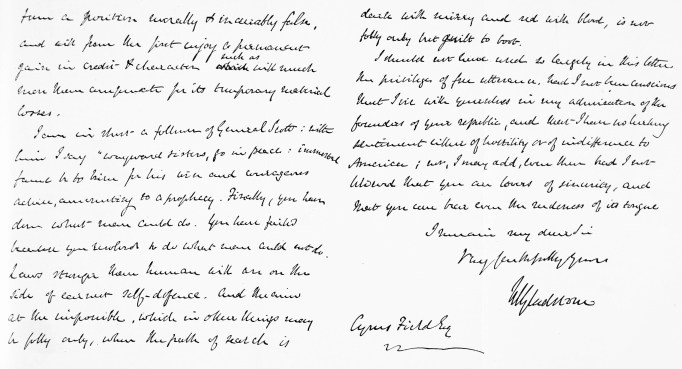 from a position morally & incurably false,
and will from the first enjoy a permanent
gain in credit & character such as will much
more than compensate for its temporary material
losses.
I am in short a follower of General Scott: with
him I say "wayward sisters, go in peace: immortal
fame be to him for his wise and courageous
advice, amounting to a prophecy. Finally, you have
done what men could do. You have failed
because you resolved to do what men could not do.
Laws stronger than human will are on the
side of earnest self-defence. And the aim
at the impossible, which in other things may
be folly only, when the path of search is
dark with misery and red with blood, is not
folly only but guilt to boot.
I should not have used so largely in this letter
the privileges of free utterance, had I not been conscious
that I vie with yourselves in my admiration of the
founders of your republic, and that I have no lurking
sentiment either of hostility or of indifference to
America; nor, I may add, even then had I not
believed that you are lovers of sincerity, and
that you can bear even the rudeness of its tongue
I remain my dear Sir
Very faithfully yours
WEGladstone
Cyrus Field Esq